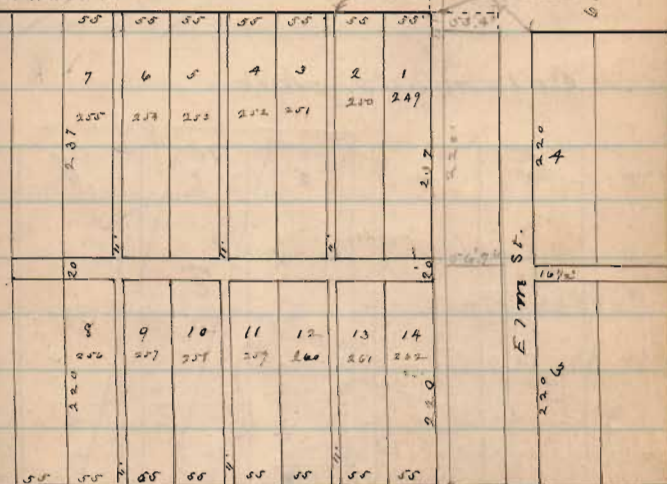 55 55 55 55 55 55 55 53.4
7 6 5 4 3 2 1
255 254 253 252 251 250 249
237 237 220 220 4
20 20 16½
Elm St.
8 9 10 11 12 13 14
256 257 258 259 260 261 262
220 220 220 3
55 55 55 55 55 55 55 55